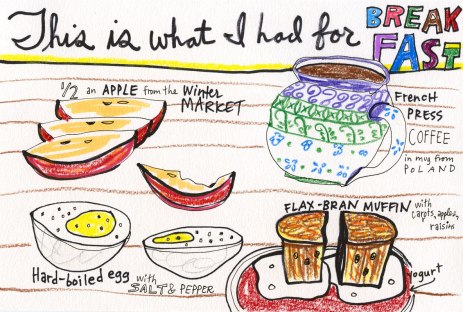 This is what I had for BREAK
FAST
1/2 an APPLE from the Winter
MARKET
French
PRESS
COFFEE
in my from
POLAND
FLAX-BRAN MUFFIN with
carrots, apples,
raisins
Hard-boiled egg with
SALT & PEPPER
Yogurt